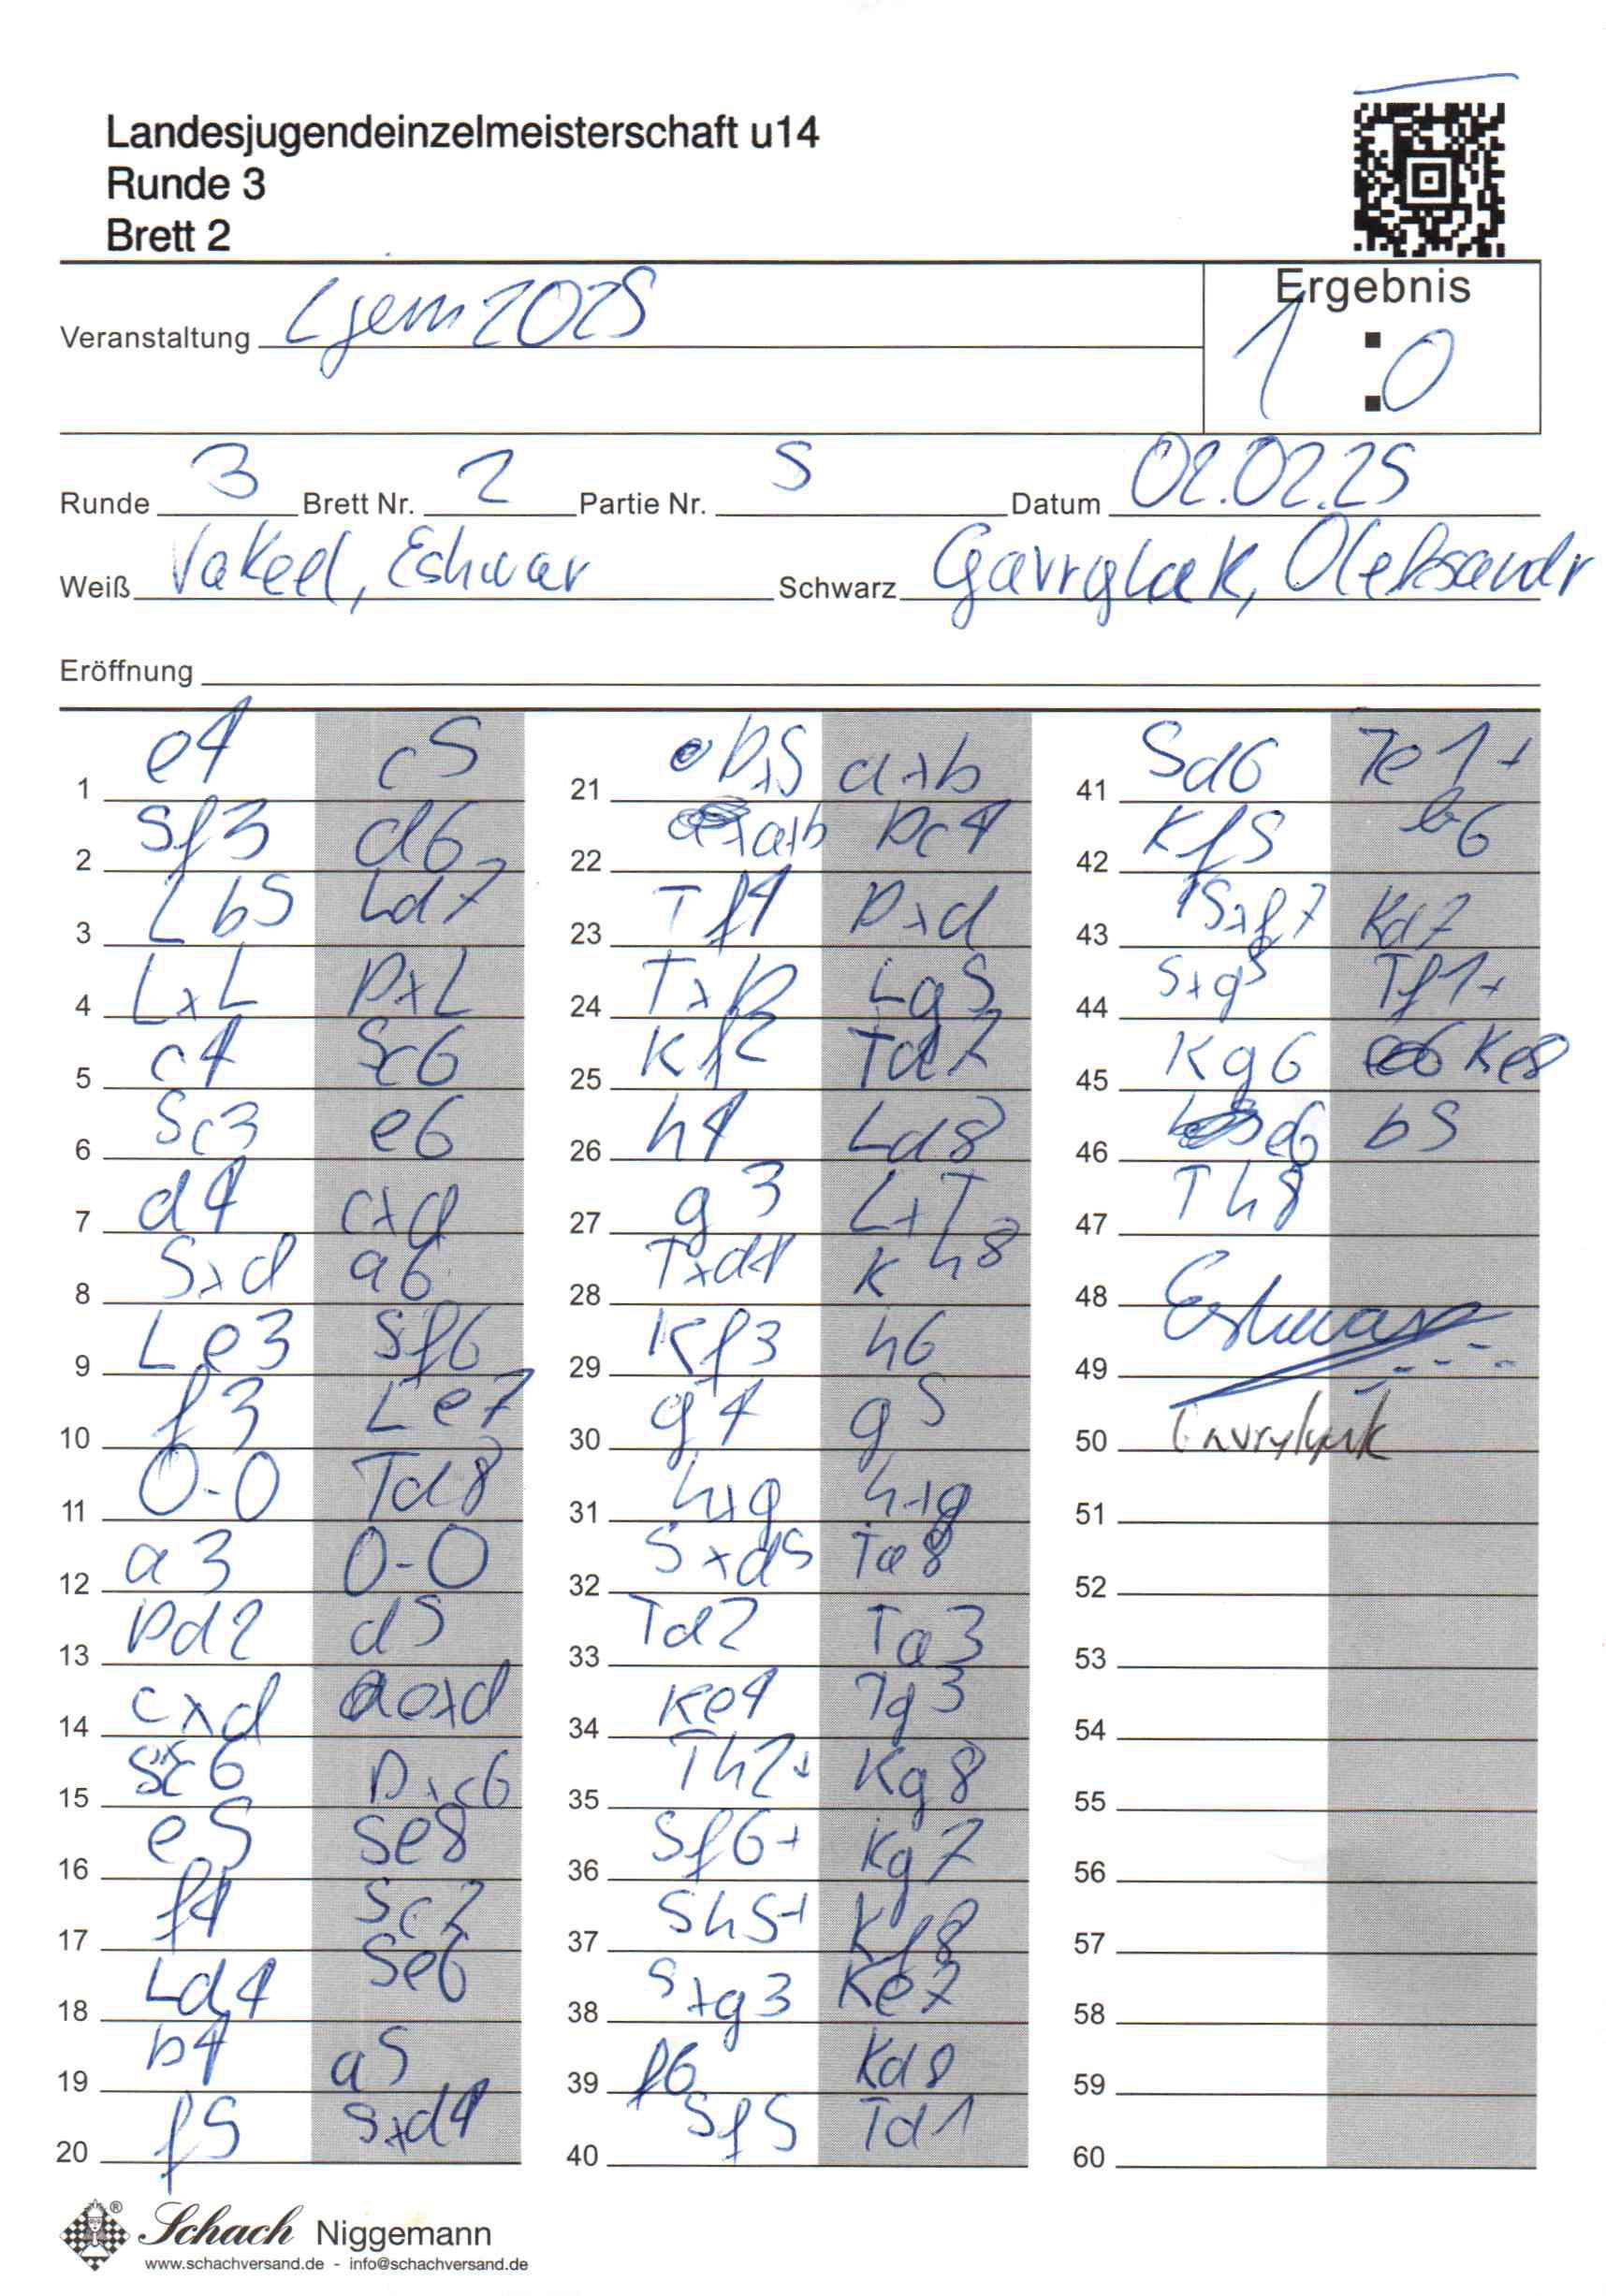 Landesjugendeinzelmeisterschaft u14
Runde 3
Brett 2
Ergebnis
Veranstaltung Ljem 2025
1 : 0
Runde 3 Brett Nr. 2 Partie Nr. 5 Datum 02.02.25
Weiß Vakeel, Eshwar Schwarz Gavrylak, Oleksandr
Eröffnung
1 e4 c5
2 Sf3 d6
3 Lb5 Ld7
4 LxL DxL
5 c4 Sc6
6 Sc3 e6
7 d4 cxd
8 Sxd a6
9 Le3 Sf6
10 f3 Le7
11 0-0 Td8
12 a3 0-0
13 Dd2 d5
14 cxd exd
15 Sxc6 Dxc6
16 e5 Se8
17 f4 Sc7
18 Ld4 Se6
19 b4 a5
20 f5 Sxd4
21 Dx5 axb
22 axb Dc4
23 Tf4 Dxd
24 TxD Lg5
25 Kf2 Td7
26 h4 Ld8
27 g3 LxT
28 Txd4 Kh8
29 Kf3 h6
30 g4 g5
31 hxg hxg
32 Sxd5 Ta8
33 Td2 Ta3
34 Ke4 Tg3
35 Th2+ Kg8
36 Sf6+ Kg7
37 Sh5+ Kf8
38 Sxg3 Ke7
39 f6 Kd8
40 Sf5 Td1
41 Sd6 Te1+
42 Kf5 b6
43 Sxf7 Kd7
44 Sxg5 Tf1+
45 Kg6 Ke8
46 e6 b5
47 Th8
48 Eshwar
49
50 Gavrylyuk
51
52
53
54
55
56
57
58
59
60
® Schach Niggemann
www.schachversand.de - info@schachversand.de